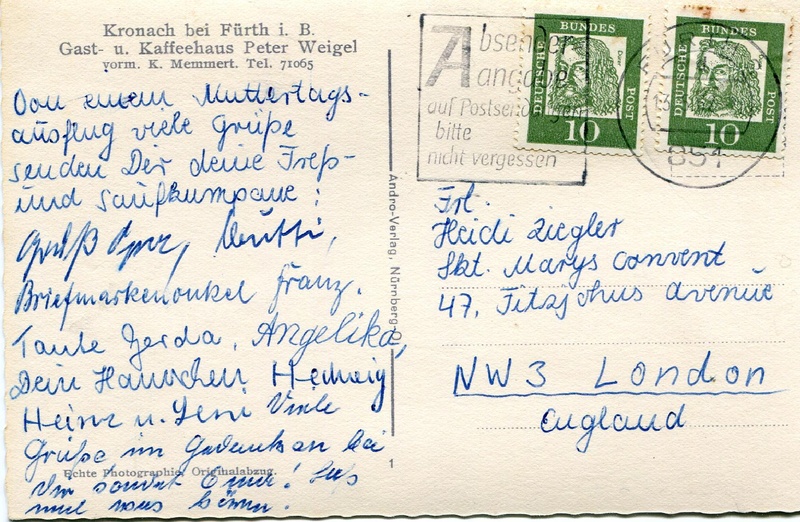 Kronach bei Fürth i. B.
Gast- u. Kaffeehaus Peter Weigel
vorm. K. Memmert. Tel. 71065
Von einem Muttertags-
ausflug viele Grüße
senden Dir deine Freß-
und Saufkumpane:
Gruß Mutti,
Briefmarkenonkel Franz.
Tante Gerda, Angelika,
Dein Hannchen Hedwig
Heinz u. Leni Viele
Grüße im Gedenken bei
Dir sendet
mal was hören.
Echte Photographie, Originalabzug.
Andro-Verlag, Nürnberg-O
1
Absender
angabe
auf Postsendungen
bitte
nicht vergessen
DEUTSCHE BUNDES POST
Dürer
10
DEUTSCHE BUNDES POST
10
851
Frl.
Heidi Ziegler
Skt. Marys Convent
47, Fitzjohns Avenue
NW3 London
England